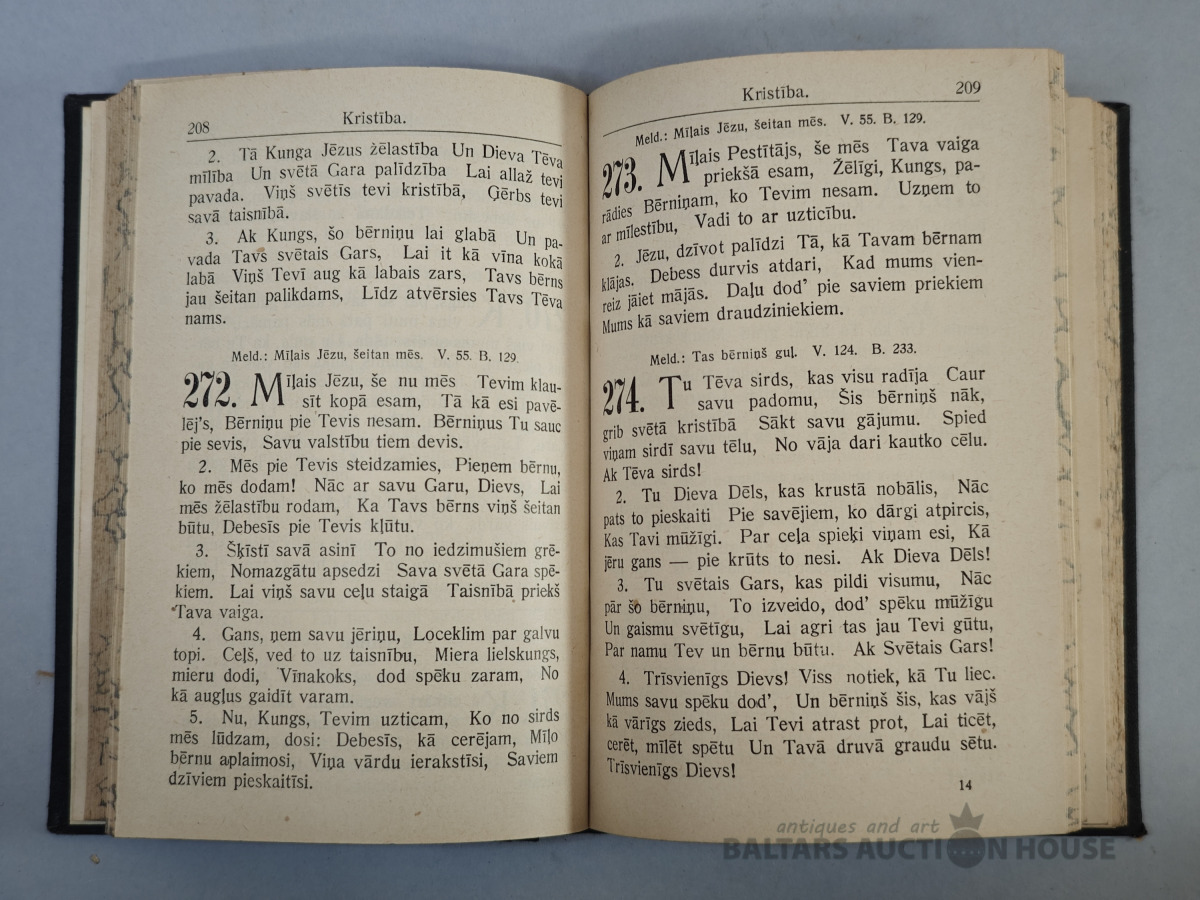 208
Kristība.
2. Tā Kunga Jēzus žēlastība Un Dieva Tēva
mīlība Un svētā Gara palīdzība Lai allaž tevi
pavada. Viņš svētīs tevi kristībā, Ģērbs tevi
savā taisnībā.
3. Ak Kungs, šo bērniņu lai glabā Un pa-
vada Tavs svētais Gars, Lai it kā vīna kokā
labā Viņš Tevī aug kā labais zars, Tavs bērns
jau šeitan palikdams, Līdz atvērsies Tavs Tēva
nams.
Meld.: Mīļais Jēzu, šeitan mēs. V. 55. B. 129.
272. Mīļais Jēzu, še nu mēs Tevim klau-
sīt kopā esam, Tā kā esi pavē-
lēj's, Bērniņu pie Tevis nesam. Bērniņus Tu sauc
pie sevis, Savu valstību tiem devis.
2. Mēs pie Tevis steidzamies, Pieņem bērnu,
ko mēs dodam! Nāc ar savu Garu, Dievs, Lai
mēs žēlastību rodam, Ka Tavs bērns viņš šeitan
būtu, Debesīs pie Tevis kļūtu.
3. Šķīstī savā asinī To no iedzimušiem grē-
kiem, Nomazgātu apsedzi Sava svētā Gara spē-
kiem. Lai viņš savu ceļu staigā Taisnībā priekš
Tava vaiga.
4. Gans, ņem savu jēriņu, Loceklim par galvu
topi. Ceļš, ved to uz taisnību, Miera lielskungs,
mieru dodi, Vīnakoks, dod spēku zaram, No
kā augļus gaidīt varam.
5. Nu, Kungs, Tevim uzticam, Ko no sirds
mēs lūdzam, dosi: Debesīs, kā cerējam, Mīļo
bērnu aplaimosi, Viņa vārdu ierakstīsi, Saviem
dzīviem pieskaitīsi.
Kristība.
209
Meld.: Mīļais Jēzu, šeitan mēs. V. 55. B. 129.
273. Mīļais Pestītājs, še mēs Tava vaiga
priekšā esam, Žēlīgi, Kungs, pa-
rādies Bērniņam, ko Tevim nesam. Uzņem to
ar mīlestību, Vadi to ar uzticību.
2. Jēzu, dzīvot palīdzi Tā, kā Tavam bērnam
klājas. Debess durvis atdari, Kad mums vien-
reiz jāiet mājās. Daļu dod' pie saviem priekiem
Mums kā saviem draudziniekiem.
Meld.: Tas bērniņš guļ. V. 124. B. 233.
274. Tu Tēva sirds, kas visu radīja Caur
savu padomu, Šis bērniņš nāk,
grib svētā kristībā Sākt savu gājumu. Spied
viņam sirdī savu tēlu, No vāja dari kautko cēlu.
Ak Tēva sirds!
2. Tu Dieva Dēls, kas krustā nobālis, Nāc
pats to pieskaiti Pie savējiem, ko dārgi atpircis,
Kas Tavi mūžīgi. Par ceļa spieķi viņam esi, Kā
jēru gans — pie krūts to nesi. Ak Dieva Dēls!
3. Tu svētais Gars, kas pildi visumu, Nāc
pār šo bērniņu, To izveido, dod' spēku mūžīgu
Un gaismu svētīgu, Lai agri tas jau Tevi gūtu,
Par namu Tev un bērnu būtu. Ak Svētais Gars!
4. Trīsvienīgs Dievs! Viss notiek, kā Tu liec.
Mums savu spēku dod', Un bērniņš šis, kas vājš
kā vārīgs zieds, Lai Tevi atrast prot, Lai ticēt,
cerēt, mīlēt spētu Un Tavā druvā graudu sētu.
Trīsvienīgs Dievs!
14
antiques and art
BALTARS AUCTION HOUSE